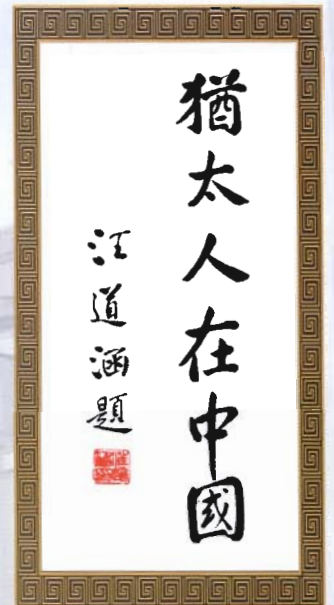 猶太人在中國
汪道涵題